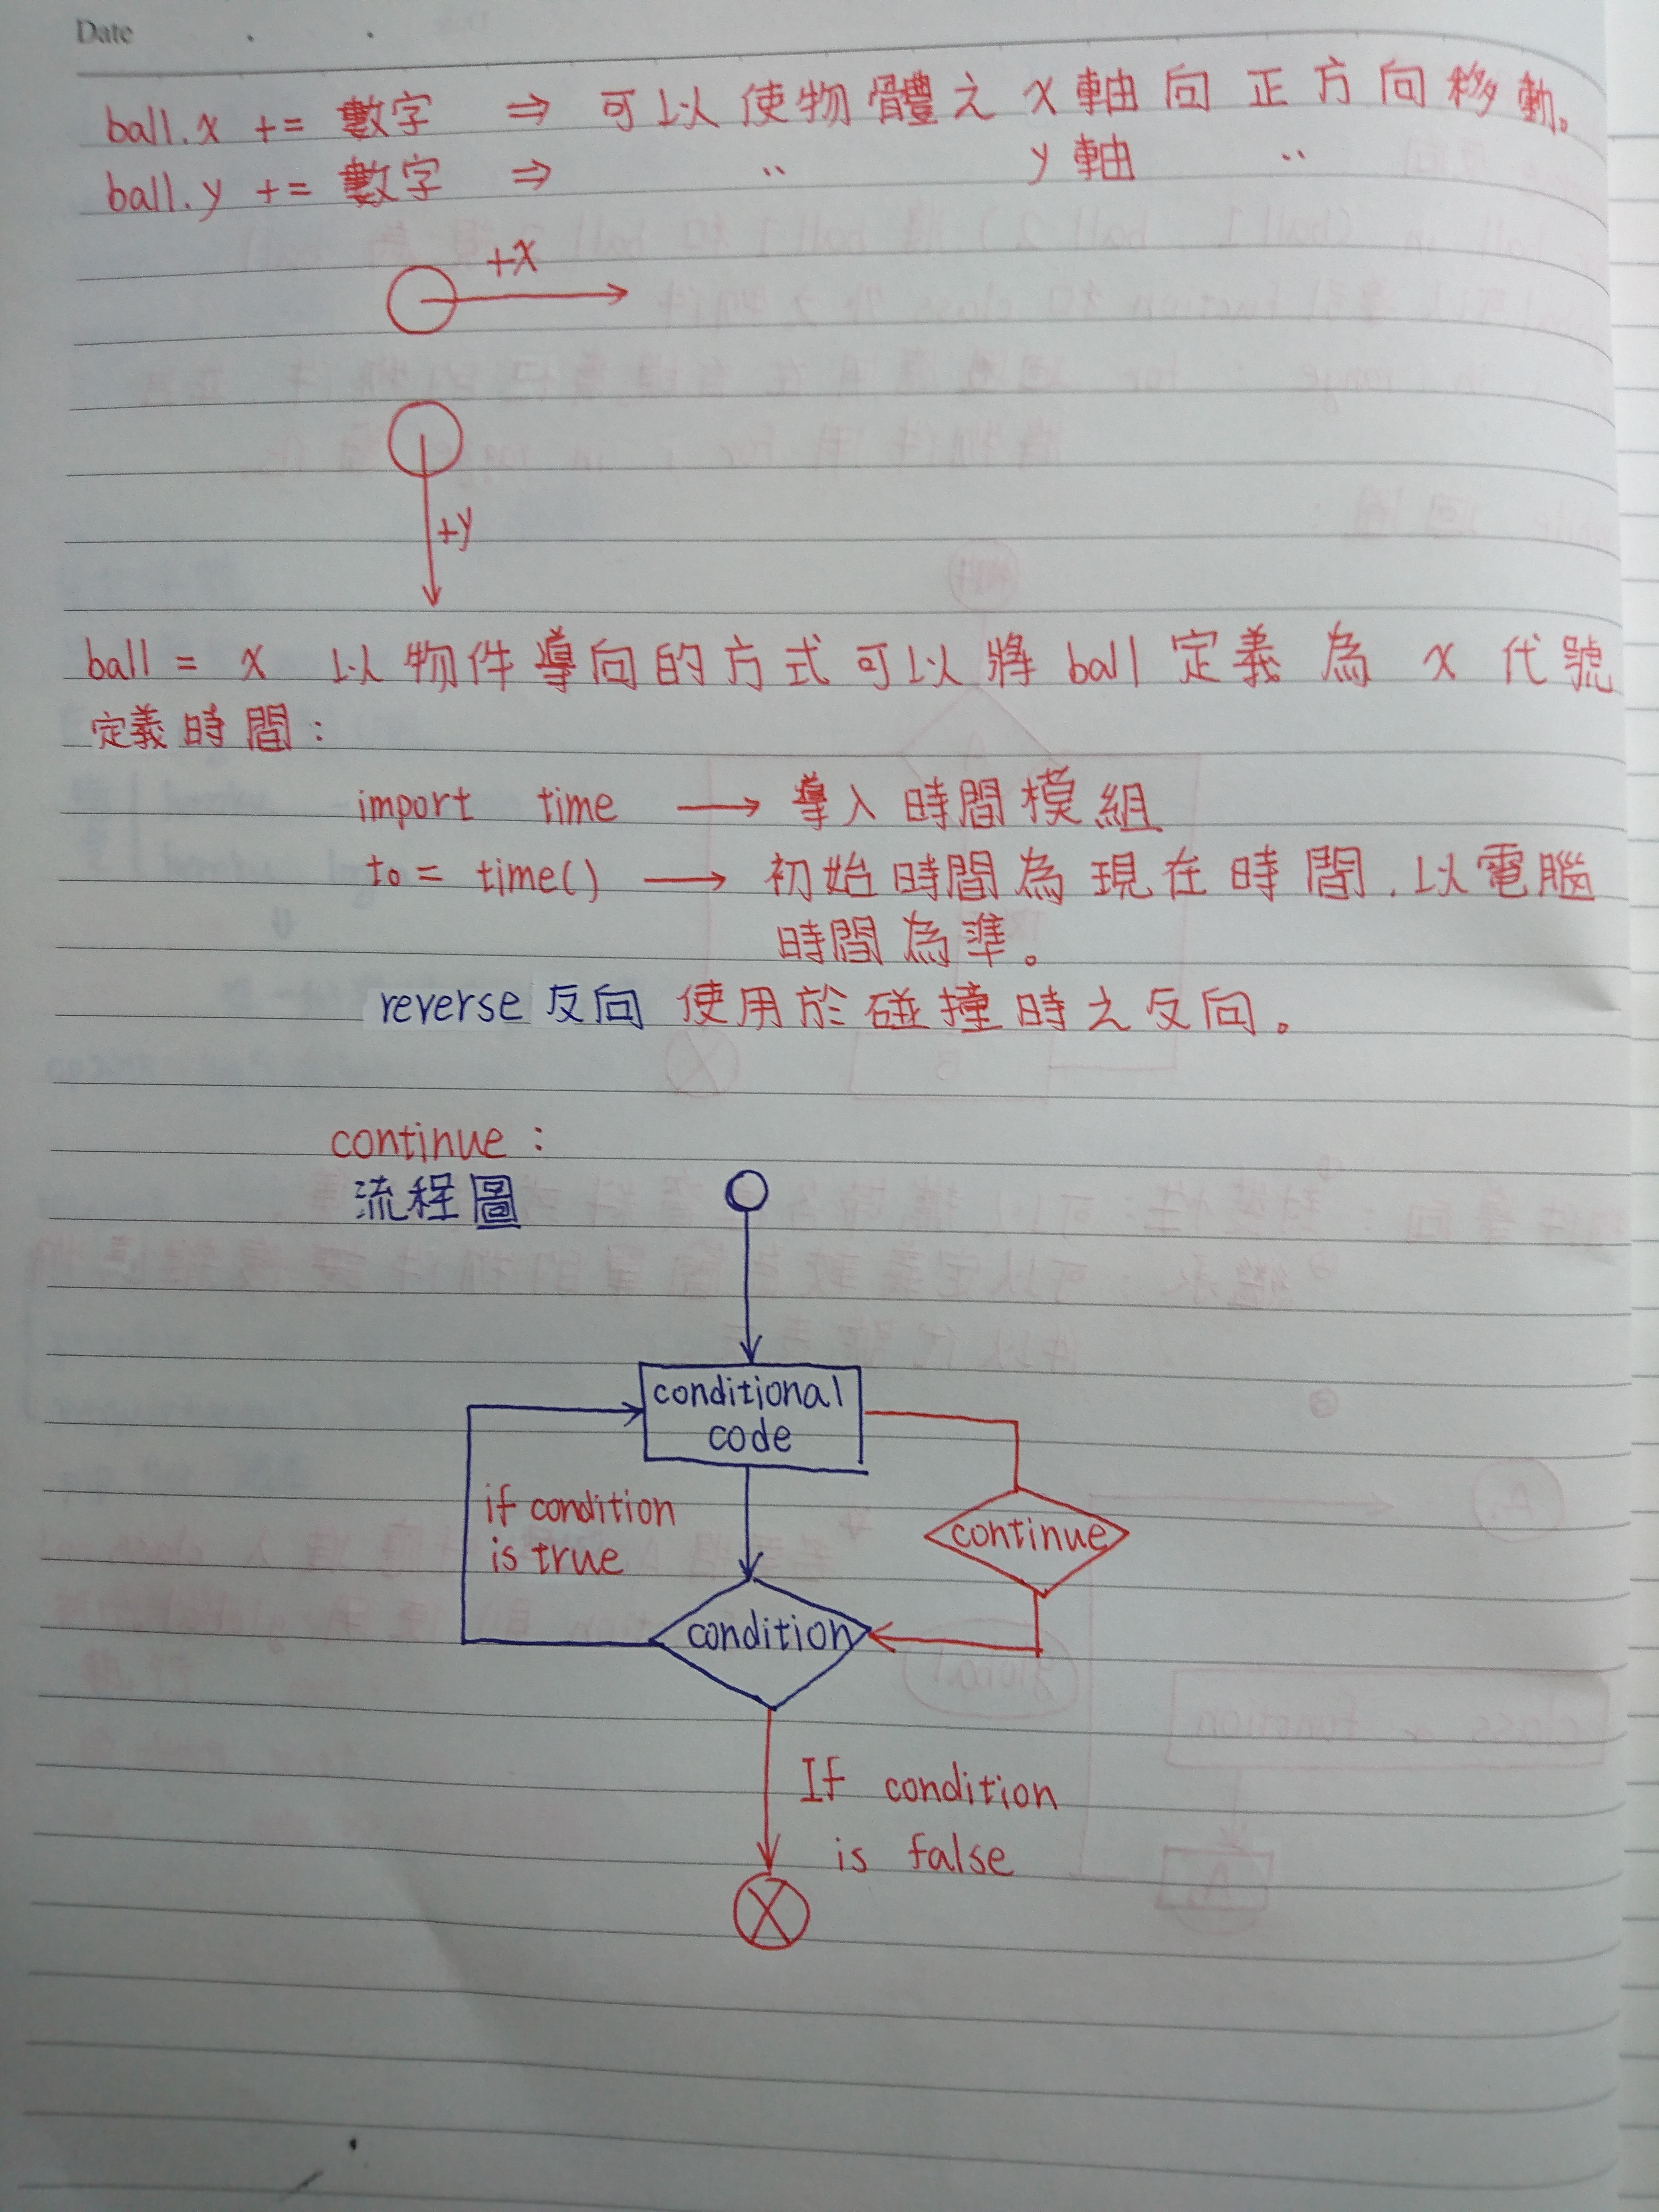 Date
ball.x += 數字 ⇒ 可以使物體之x軸向正方向移動。
ball.y += 數字 ⇒ 〃 y軸 〃
+x
+y
ball = x 以物件導向的方式可以將ball定義為x代號
定義時間:
import time → 導入時間模組
t0 = time() → 初始時間為現在時間,以電腦
時間為準。
reverse 反向 使用於碰撞時之反向。
continue:
流程圖
conditional
code
if condition
is true
continue
condition
If condition
is false